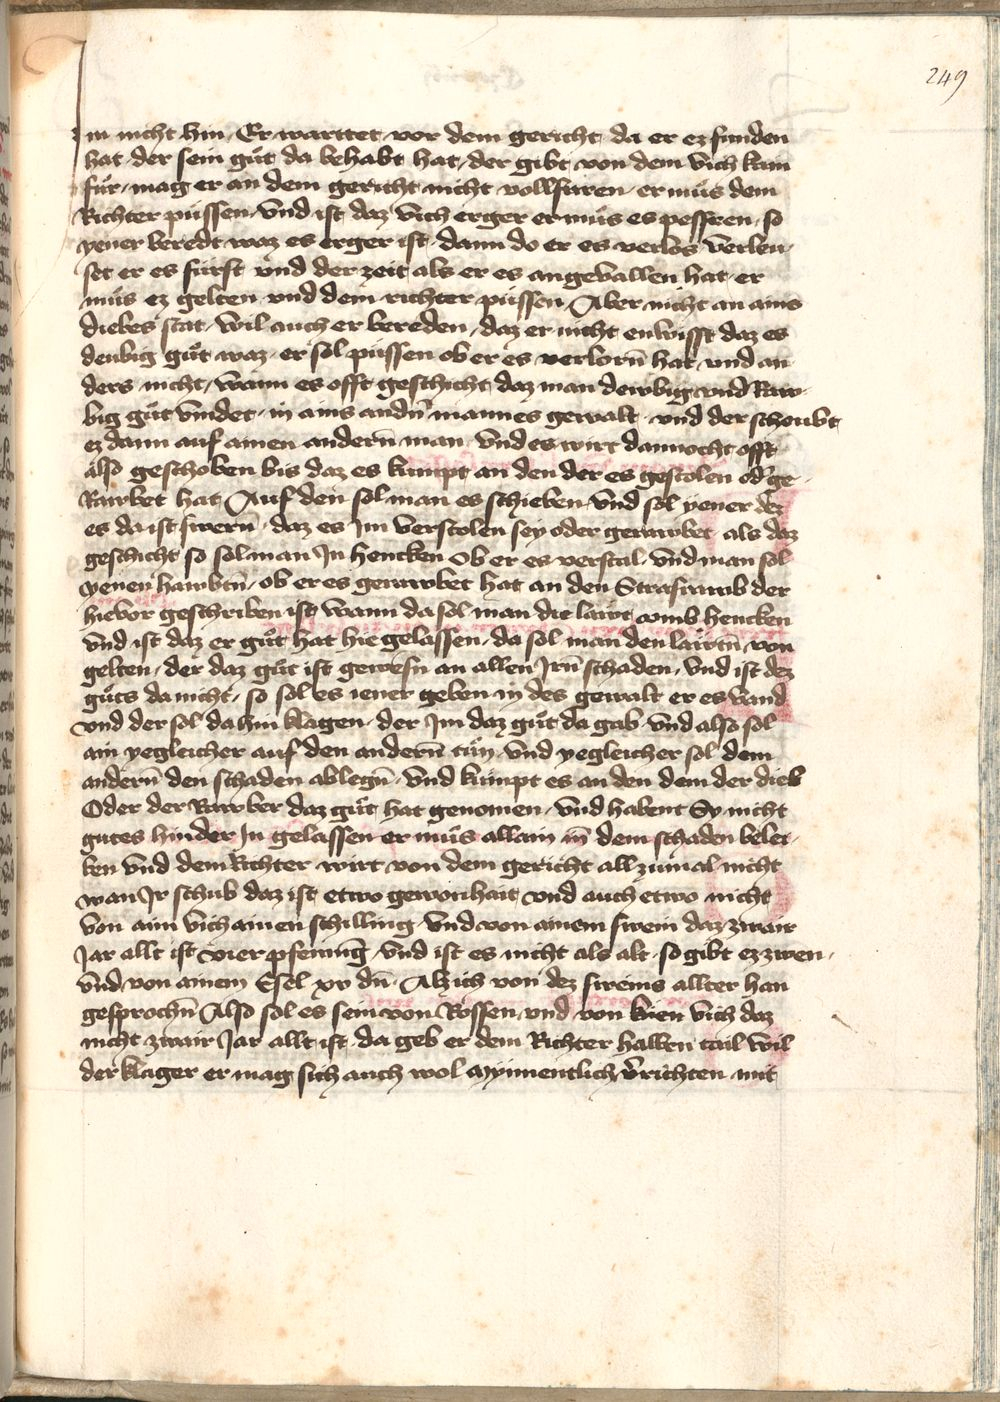 249
in nicht hin Er warttet vor dem gericht da er ez funden
hat der sein gůt da behabt hat der gibt von dem vich kain
fůr mag er an dem gericht nicht vollfuren er můs dem
Richter půssen vnd ist daz vich erger er můs es pessren so
yener beredt waz es erger ist dann do er es verlos verlew
set er es fürst vnd der zeit als er es angevallen hat er
můs ez gelten vnd dem richter půssen Aber nicht an ains
diebes stat wil auch er bereden daz er nicht enwisst daz es
deubig gůt waz er sol půssen ob er es verlorñ hat vnd an
ders nicht wann es offt geschicht daz man dewbig vnd Raw
big gůt vindet in ains andñ mannes gewalt vnd der scheubt
ez dann auf ainen anderñ man vnd es wirt dannocht offt
also geschoben bis daz es kumpt an den der es gestolen od ge
Rawbet hat Auf den sol man es schieben vnd sol yener dez
es da ist swerñ daz es Jm verstolen sey oder gerawbet als daz
geschicht so sol man Jn hencken ob er es verstal vnd man sol
yenen hawbtñ ob er es gerawbet hat an den Strasrawb der
hievor geschriben ist wann da sol man die lawt vmb hencken
vnd ist daz er gůt hat hie gelassen da sol man den lawtñ von
gelten der daz gůt ist gewesn an allen Jrñ schaden vnd ist dez
gůts da nicht so sol es iener geben in des gewalt er es vand
vnd der sol da hin klagen der Jm daz gůt da gab vnd also sol
ain yegleicher auf den anderñ tůn vnd yegleicher sol dem
anderñ den schaden ablegñ vnd kumpt es an den dem der dieb
Oder der Rawber daz gůt hat genomen vnd habent Sy nicht
gutes hinder Jn gelassen er můs allain in dem schaden belei
ben vnd dem Richter wirt von dem gericht all zumal nicht
wan Jr schub daz ist etwo gewonhait vnd auch etwo nicht
von aim vich ainen schilling vnd von ainem swein daz zwair
Jar allt ist vier pfening vnd ist es nicht als alt so gibt ez zwen
vnd von ainem Esel xv dñ Alz ich von dez sweins allter han
gesprochñ Also sol es sein von Rossen vnd von kůen vich daz
nicht zwair Jar allt ist da geb er dem Richter halben tail wil
der klager er mag sich auch wol mynnentlich verichten mit